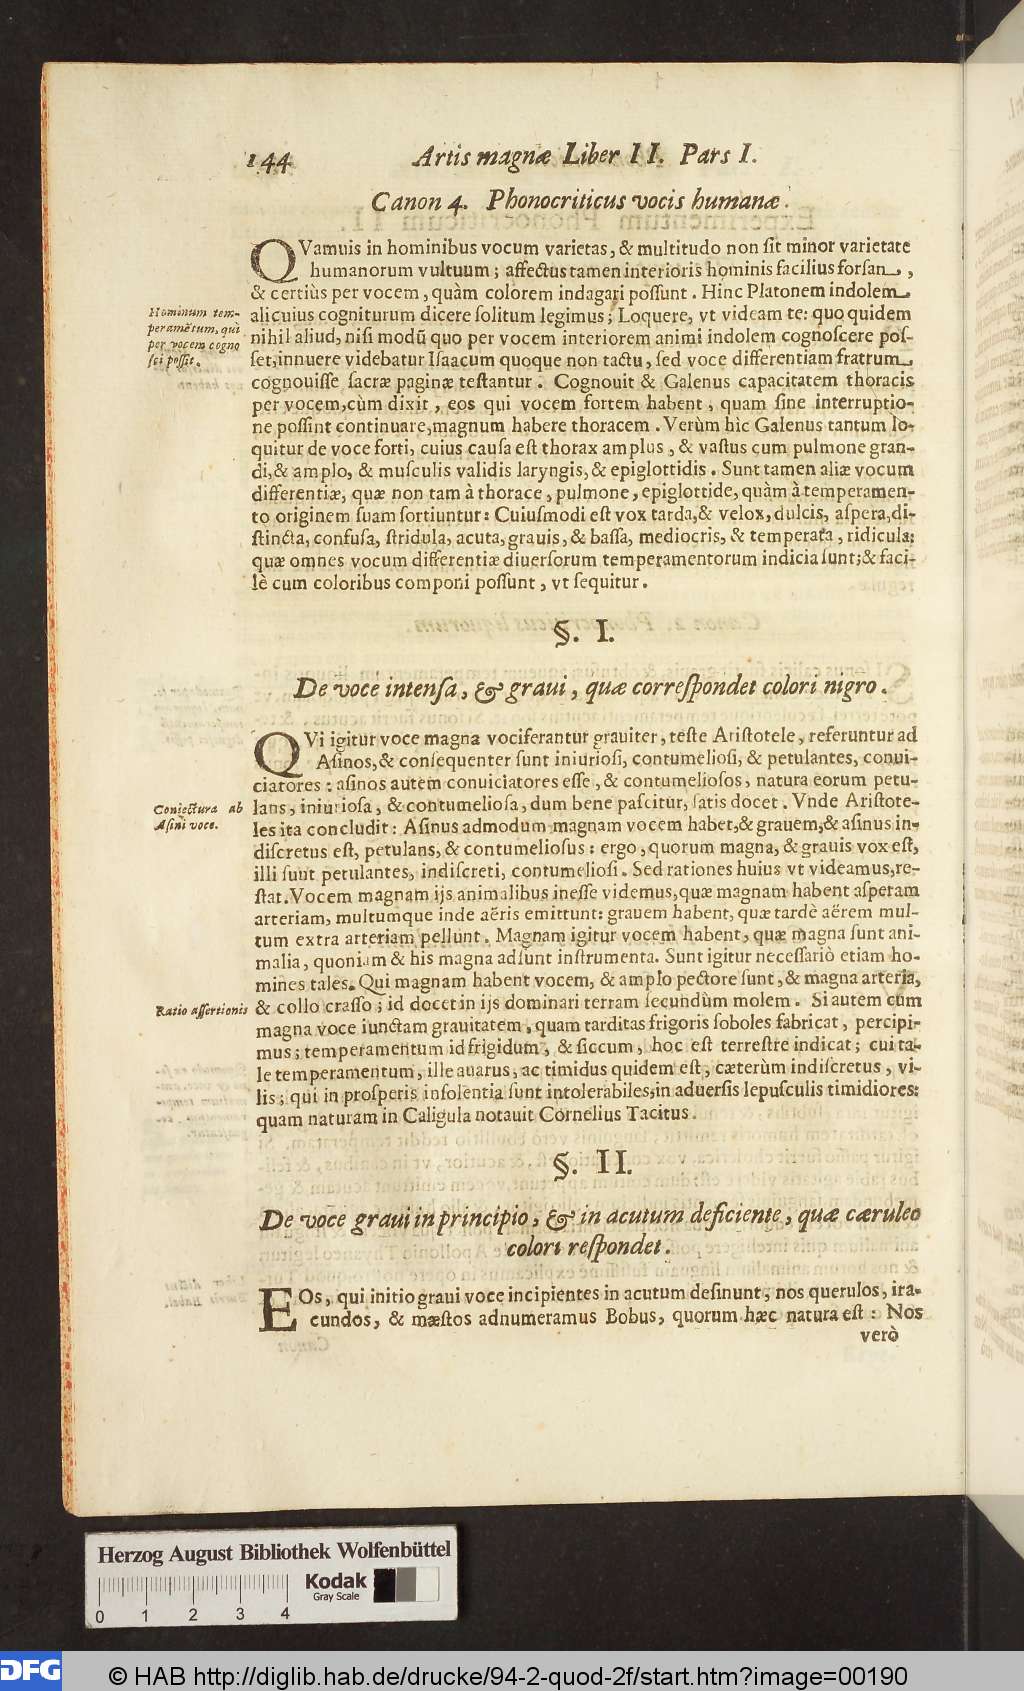 144 Artis magnæ Liber II. Pars I.
Canon 4. Phonocriticus vocis humanæ.
QVamuis in hominibus vocum varietas, & multitudo non ſit minor varietate
humanorum vultuum; affectus tamen interioris hominis facilius forſan,
& certiùs per vocem, quàm colorem indagari poſſunt. Hinc Platonem indolem
alicuius cogniturum dicere ſolitum legimus; Loquere, vt videam te: quo quidem
nihil aliud, niſi modū quo per vocem interiorem animi indolem cognoſcere poſ-
ſet, innuere videbatur Iſaacum quoque non tactu, ſed voce differentiam fratrum
cognouiſſe ſacræ paginæ teſtantur. Cognouit & Galenus capacitatem thoracis
per vocem, cùm dixit, eos qui vocem fortem habent, quam ſine interruptio-
ne poſſint continuare, magnum habere thoracem. Verùm hic Galenus tantum lo-
quitur de voce forti, cuius cauſa eſt thorax amplus, & vaſtus cum pulmone gran-
di, & amplo, & muſculis validis laryngis, & epiglottidis. Sunt tamen aliæ vocum
differentiæ, quæ non tam à thorace, pulmone, epiglottide, quàm à temperamen-
to originem ſuam ſortiuntur: Cuiuſmodi eſt vox tarda, & velox, dulcis, aſpera, di-
ſtincta, confuſa, ſtridula, acuta, grauis, & baſſa, mediocris, & temperata, ridicula;
quæ omnes vocum differentiæ diuerſorum temperamentorum indicia ſunt; & faci-
lè cum coloribus componi poſſunt, vt ſequitur.
Hominum tem-
peramētum, qui
per vocem cogno
ſci poſſit.
§. I.
De voce intenſa, & graui, quæ correſpondet colori nigro.
QVi igitur voce magna vociferantur grauiter, teſte Ariſtotele, referuntur ad
Aſinos, & conſequenter ſunt iniurioſi, contumelioſi, & petulantes, conui-
ciatores: aſinos autem conuiciatores eſſe, & contumelioſos, natura eorum petu-
lans, iniurioſa, & contumelioſa, dum bene paſcitur, ſatis docet. Vnde Ariſtote-
les ita concludit: Aſinus admodum magnam vocem habet, & grauem, & aſinus in-
diſcretus eſt, petulans, & contumelioſus: ergo, quorum magna, & grauis vox eſt,
illi ſunt petulantes, indiſcreti, contumelioſi. Sed rationes huius vt videamus, re-
ſtat. Vocem magnam ijs animalibus ineſſe videmus, quæ magnam habent aſperam
arteriam, multumque inde aëris emittunt: grauem habent, quæ tardè aërem mul-
tum extra arteriam pellunt. Magnam igitur vocem habent, quæ magna ſunt ani-
malia, quoniam & his magna adſunt inſtrumenta. Sunt igitur neceſſariò etiam ho-
mines tales. Qui magnam habent vocem, & amplo pectore ſunt, & magna arteria,
& collo craſſo; id docet in ijs dominari terram ſecundùm molem. Si autem cum
magna voce iunctam grauitatem, quam tarditas frigoris ſoboles fabricat, percipi-
mus; temperamentum id frigidum, & ſiccum, hoc eſt terreſtre indicat; cui ta-
le temperamentum, ille auarus, ac timidus quidem eſt, cæterùm indiſcretus, vi-
lis; qui in proſperis inſolentia ſunt intolerabiles, in aduerſis lepuſculis timidiores:
quam naturam in Caligula notauit Cornelius Tacitus.
Coniectura ab
Aſini voce.
Ratio aſſertionis
§. II.
De voce graui in principio, & in acutum deficiente, quæ cæruleo
colori reſpondet.
EOs, qui initio graui voce incipientes in acutum deſinunt, nos querulos, ira-
cundos, & mæſtos adnumeramus Bobus, quorum hæc natura eſt: Nos
verò
Herzog August Bibliothek Wolfenbüttel
Kodak
Gray Scale
0 1 2 3 4
DFG © HAB http://diglib.hab.de/drucke/94-2-quod-2f/start.htm?image=00190